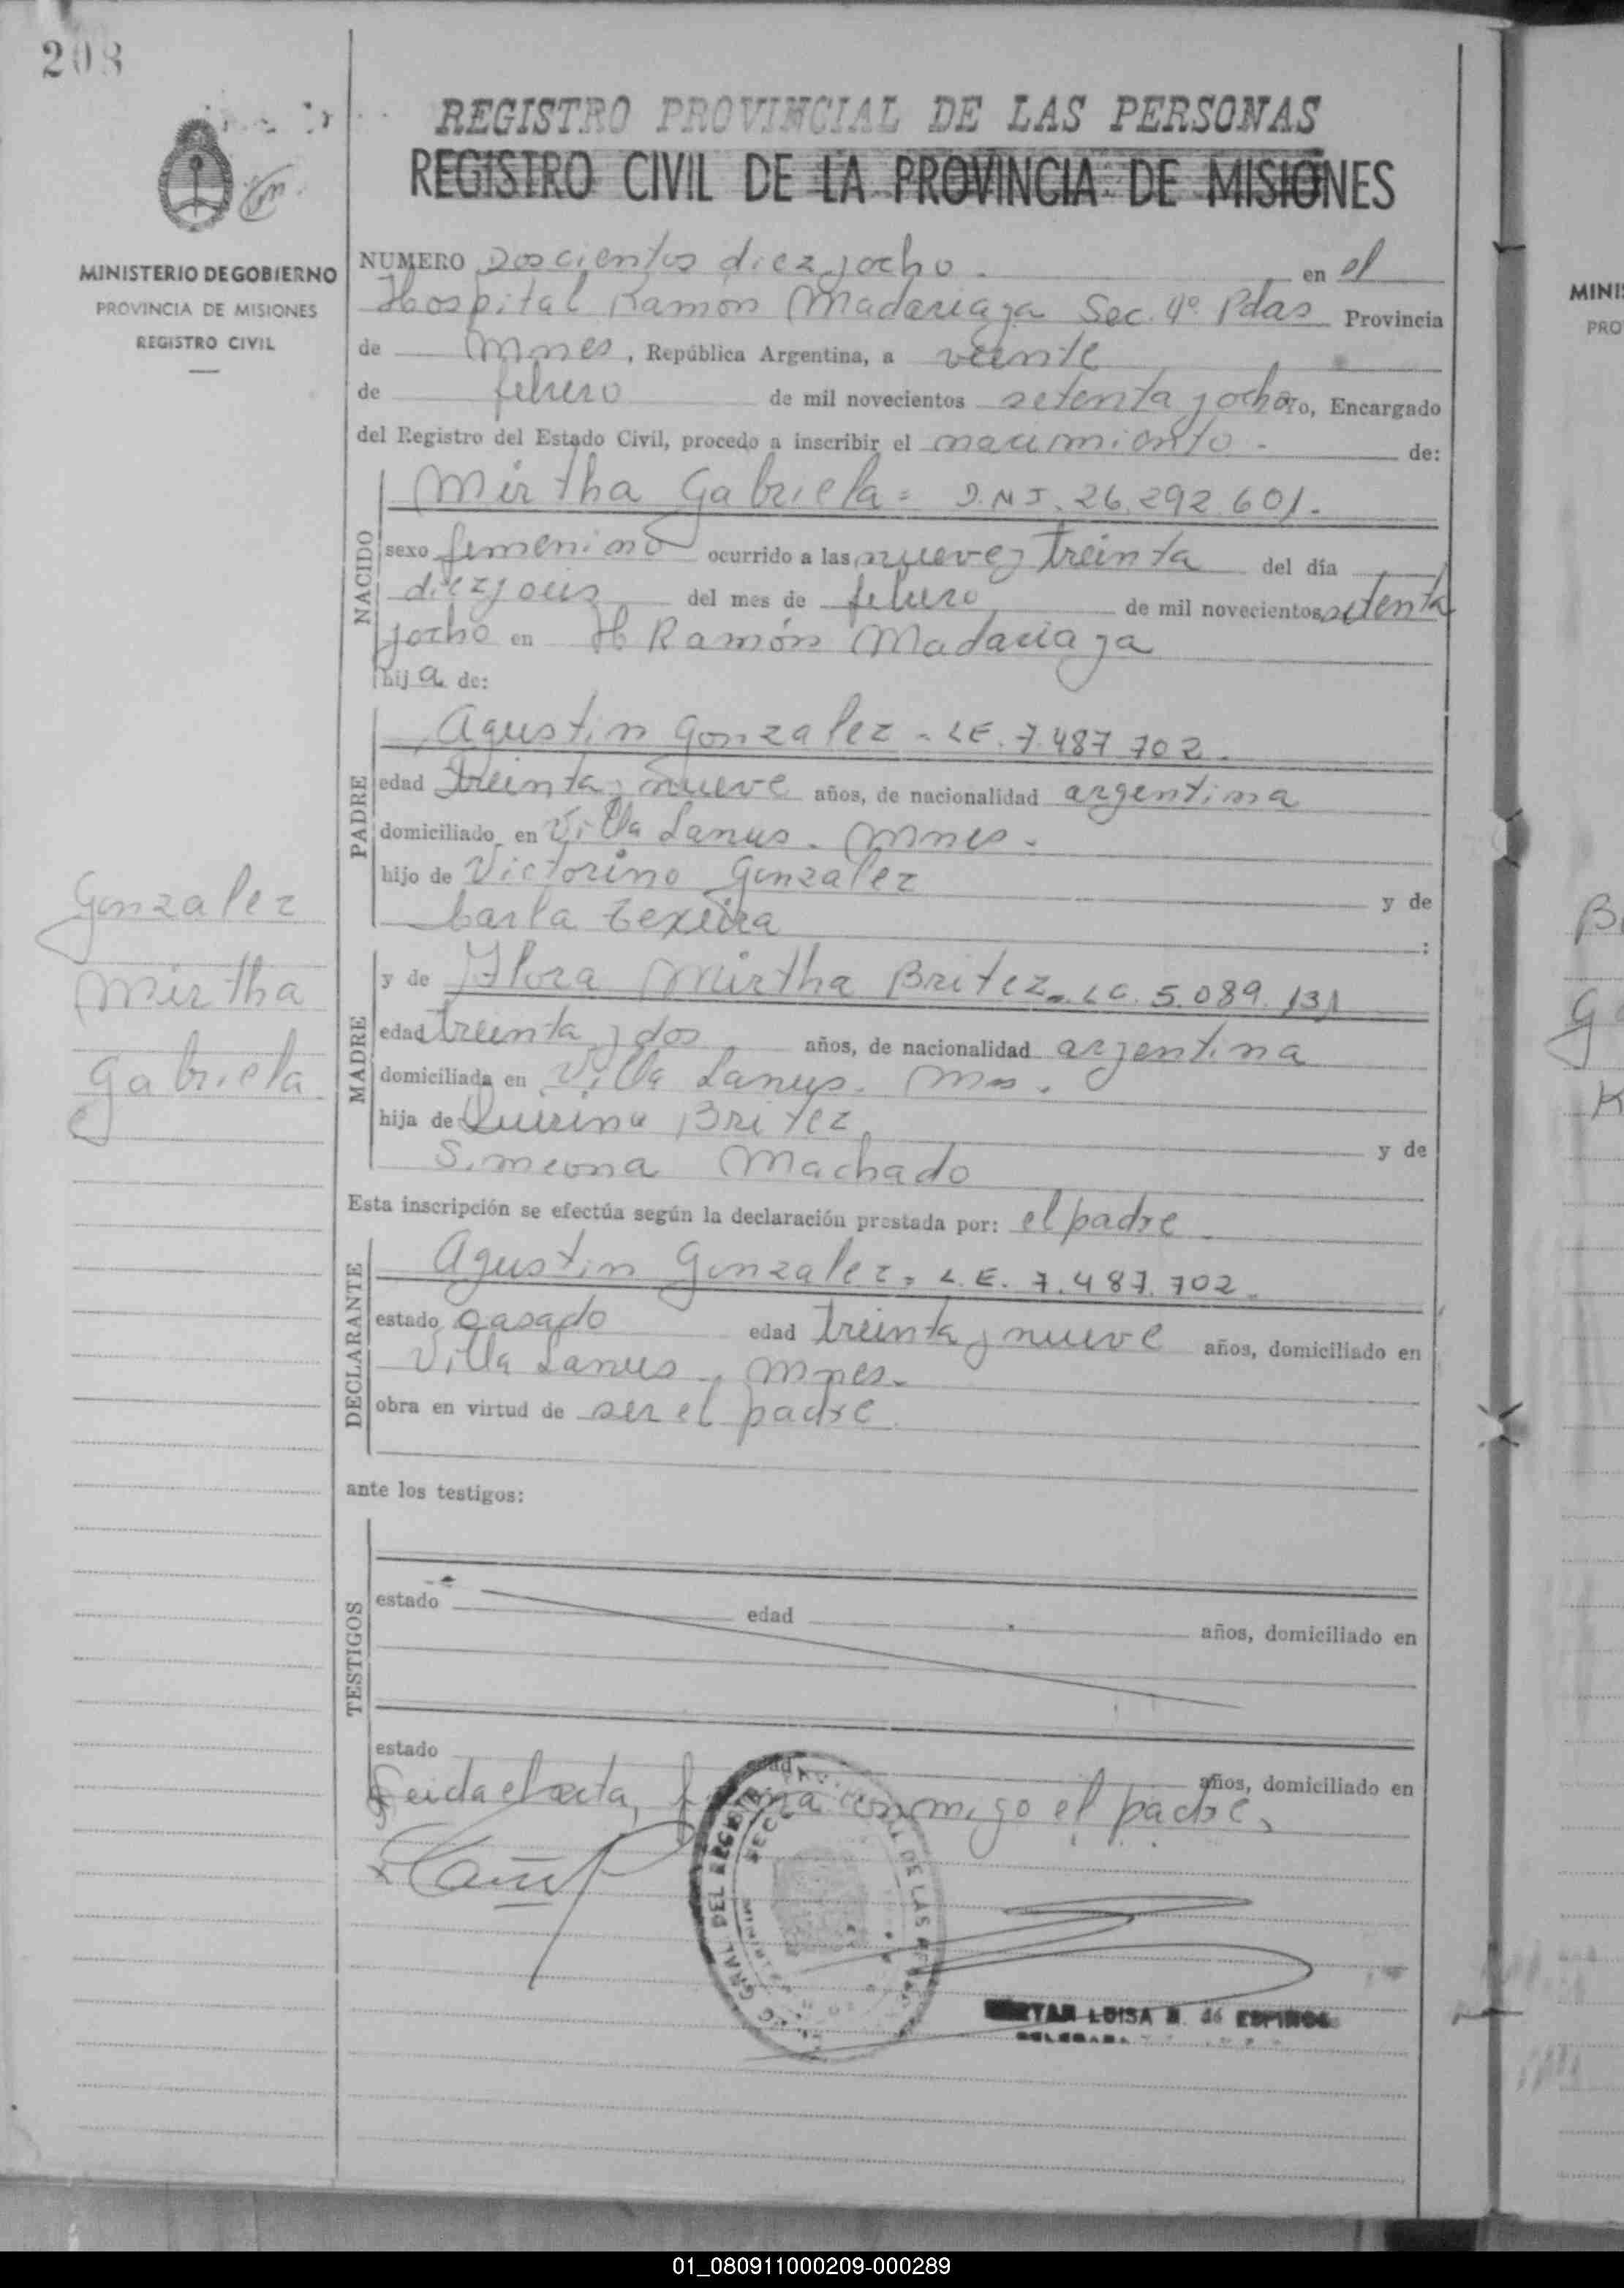 208
REGISTRO PROVINCIAL DE LAS PERSONAS
REGISTRO CIVIL DE LA PROVINCIA DE MISIONES
MINISTERIO DE GOBIERNO
PROVINCIA DE MISIONES
REGISTRO CIVIL
NUMERO Doscientos diez y ocho. en el
Hospital Ramón Madariaga Sec. 4º Pdas Provincia
de Mnes, República Argentina, a veinte
de febrero de mil novecientos setenta y ocho Yo, Encargado
del Registro del Estado Civil, procedo a inscribir el nacimiento. de:
NACIDO
Mirtha Gabriela = D.N.I. 26.292.601.
sexo femenino ocurrido a las nueve y treinta del día
diez y seis del mes de febrero de mil novecientos setenta
y ocho en H Ramón Madariaga
hija de:
PADRE
Agustin Gonzalez - LE. 7.487.702.
edad treinta y nueve años, de nacionalidad argentina
domiciliado en Villa Lanus. Mnes.
hijo de Victorino Gonzalez y de
Carla Texeira :
MADRE
y de Flora Mirtha Britez. LC. 5.089.131
edad treinta y dos años, de nacionalidad argentina
domiciliada en Villa Lanus. Mns.
hija de Quirino Britez y de
Simeona Machado
Gonzalez
Mirtha
Gabriela
Esta inscripción se efectúa según la declaración prestada por: el padre
DECLARANTE
Agustin Gonzalez = L.E. 7.487.702.
estado casado edad treinta y nueve años, domiciliado en
Villa Lanus, Mnes.
obra en virtud de ser el padre.
ante los testigos:
TESTIGOS
estado edad años, domiciliado en
estado edad años, domiciliado en
Leida el acta, firma conmigo el padre,
GRAL. DEL REGISTR DE LAS
LUISA de ESPINOS
MINI
PRO
01_080911000209-000289